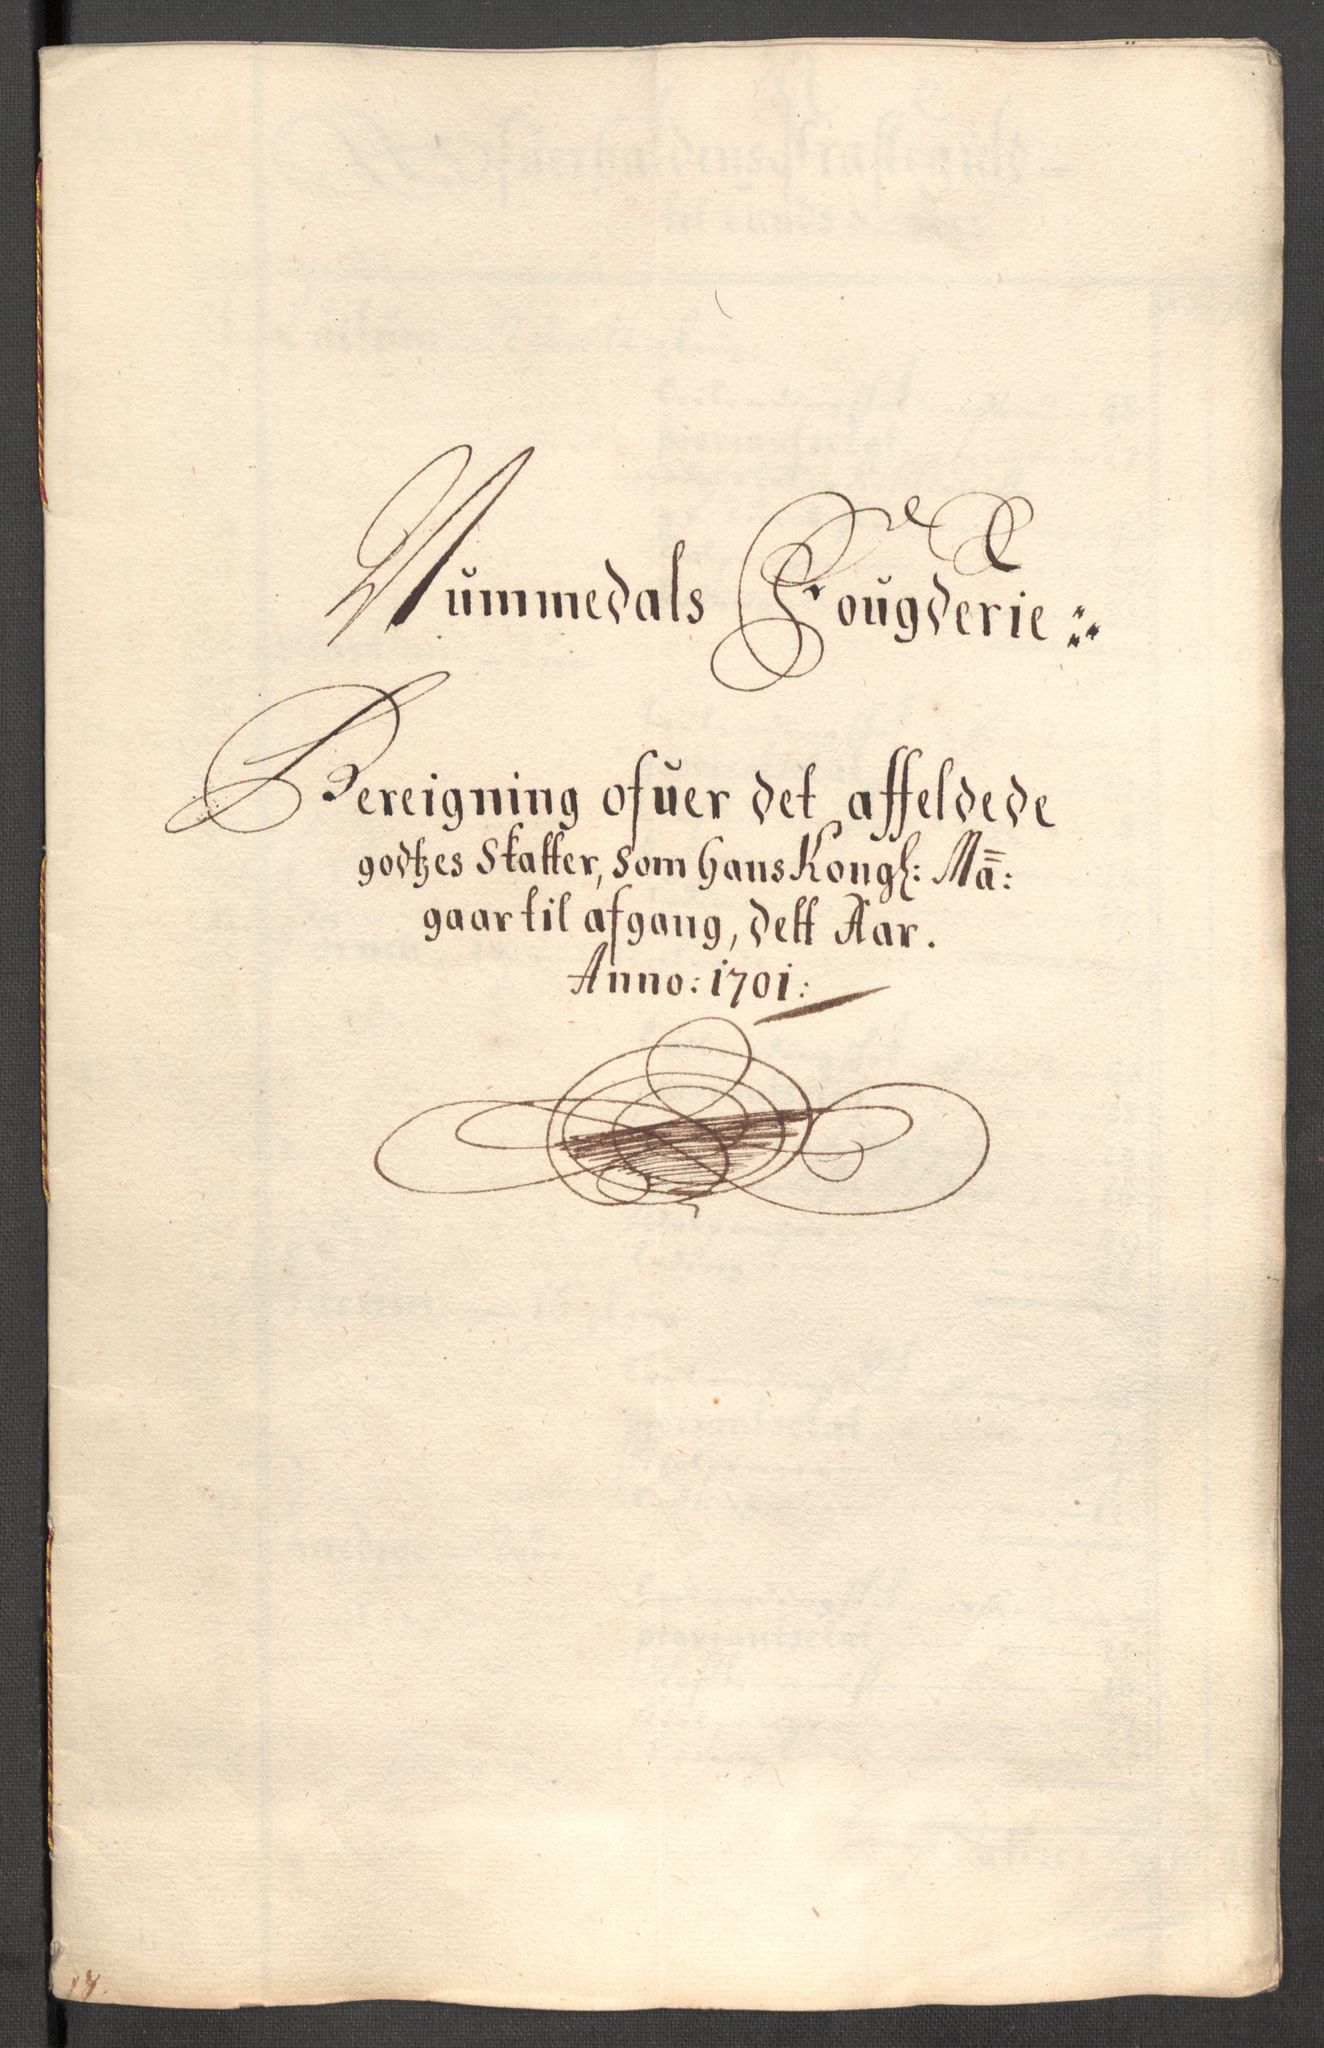 Nummedals Fougderie
Bereigning ofuer det affeldede
godtzes Skatter, som Hans Kongl: Ma:
gaar til afgang, dett Aar.
Anno: 1701: